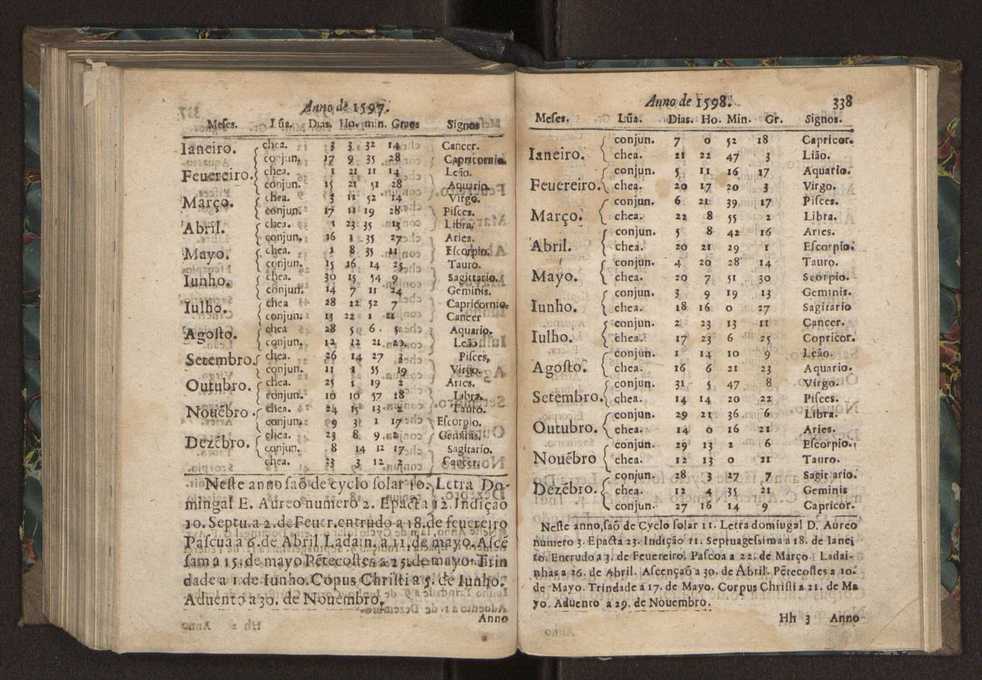 Anno de 1597.
Meses. Lũa. Dias. Ho. min. Graos Signos
Ianeiro. chea. 3 3 32 14 Cancer.
conjun. 17 9 35 28 Capricornio.
Feuereiro. chea. 1 21 11 14 Leão.
conjun. 15 21 51 28 Aquario.
Março. chea. 3 11 52 14 Virgo.
conjun. 17 11 19 28 Pisces.
Abril. chea. 1 23 35 13 Libra.
conjun. 16 1 35 27 Aries.
Mayo. chea. 1 8 35 11 Escorpio.
conjun. 15 16 14 25 Tauro.
Iunho. chea. 30 15 54 9 Sagittario.
conjun. 14 7 11 24 Geminis.
Iulho. chea 28 22 52 7 Capricornio.
conjun. 13 22 1 Cancer
Agosto. chea 28 5 6 Aquario.
conjun. 12 12 21 Leão
Setembro. chea. 26 14 27 3 Pisces,
conjun. 11 1 55 19 Virgo.
Outubro. chea. 25 1 19 2 Aries.
conjun. 10 10 57 18 Libra.
Nouẽbro. chea. 24 15 13 Tauro.
conjun. 9 3 1 17 Escorpio.
Dezẽbro. chea. 23 8 9 Geminis.
conjun. 8 14 12 17 Sagitario.
chea. 23 3 12
Neste anno saõ de cyclo solar 10. Letra Do-
mingal E. Aureo numero 2. Epacta 12. Indição
10. Septu. a 2. de Feuer. entrudo a 18. de feuereiro
Pascua a 6. de Abril Ladain. a 11. de mayo. Ascẽ
sam a 15. de mayo Pẽtecostes a 25. de mayo. Trin
dade a 1. de Iunho. Copus Christi a 5. de Iunho.
Aduento a 30. de Nouembro.
Anno
Anno de 1598. 338
Meses. Lũa. Dias. Ho. Min. Gr. Signos.
Ianeiro. conjun. 7 0 52 18 Capricor.
chea. 21 22 47 3 Lião.
Feuereiro. conjun. 5 11 16 17 Aquario.
chea. 20 17 20 3 Virgo.
Março. conjun. 6 21 39 17 Pisces.
chea. 22 8 55 2 Libra.
Abril. conjun. 5 8 42 16 Aries.
chea. 20 21 29 1 Escorpio.
Mayo. conjun. 4 20 28 14 Tauro.
chea. 20 7 51 30 Scorpio.
Iunho. conjun. 3 9 19 13 Geminis.
chea. 18 16 0 27 Sagitario
Iulho. conjun. 2 23 13 11 Cancer.
chea. 17 23 6 25 Copricor.
Agosto. conjun. 1 14 10 9 Leão.
chea. 16 6 21 23 Aquario.
Setembro. conjun. 31 5 47 8 Virgo.
chea. 14 14 20 22 Pisces.
Outubro. conjun. 29 21 36 6 Libra.
chea. 14 0 16 21 Aries.
Nouẽbro conjun. 29 13 2 6 Escorpio.
chea. 12 13 0 21 Tauro.
Dezẽbro. conjun. 28 3 27 7 Sagitario.
chea. 12 4 35 21 Geminis
conjun. 27 16 14 9 Capricor.
Neste anno, saõ de Cyclo solar 11. Letra domiugal D. Aureo
numero 3. Epacta 23. Indição 11. Septuagesima a 18. de Ianei
ro. Entrudo a 3. de Feuereiro. Pascoa a 22. de Março Ladai-
nhas a 26. de Abril. Ascençaõ a 30. de Abril. Pẽtecostes a 10.
de Mayo. Trindade a 17. de Mayo. Corpus Christi a 21. de Ma
yo. Aduento a 29. de Nouembro.
Hh 3 Anno